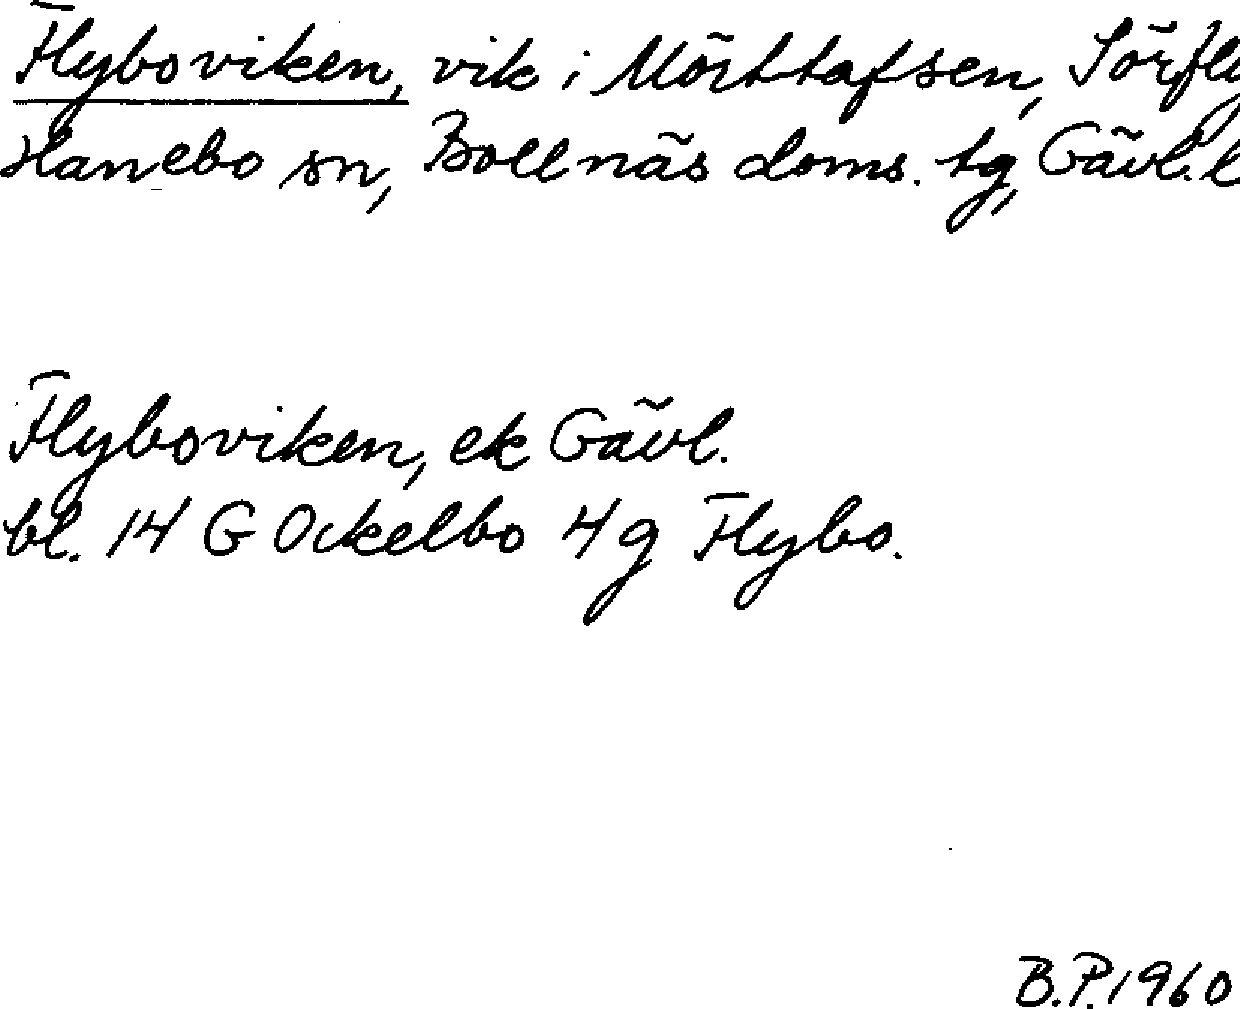 Flyboviken, vik i Mörttafsen, Sörfly
Hanebo sn, Bollnäs doms. tg, Gävl. l
Flyboviken, ek Gävl.
bl. 14 G Ockelbo 4 g Flybo.
B.P. 1960